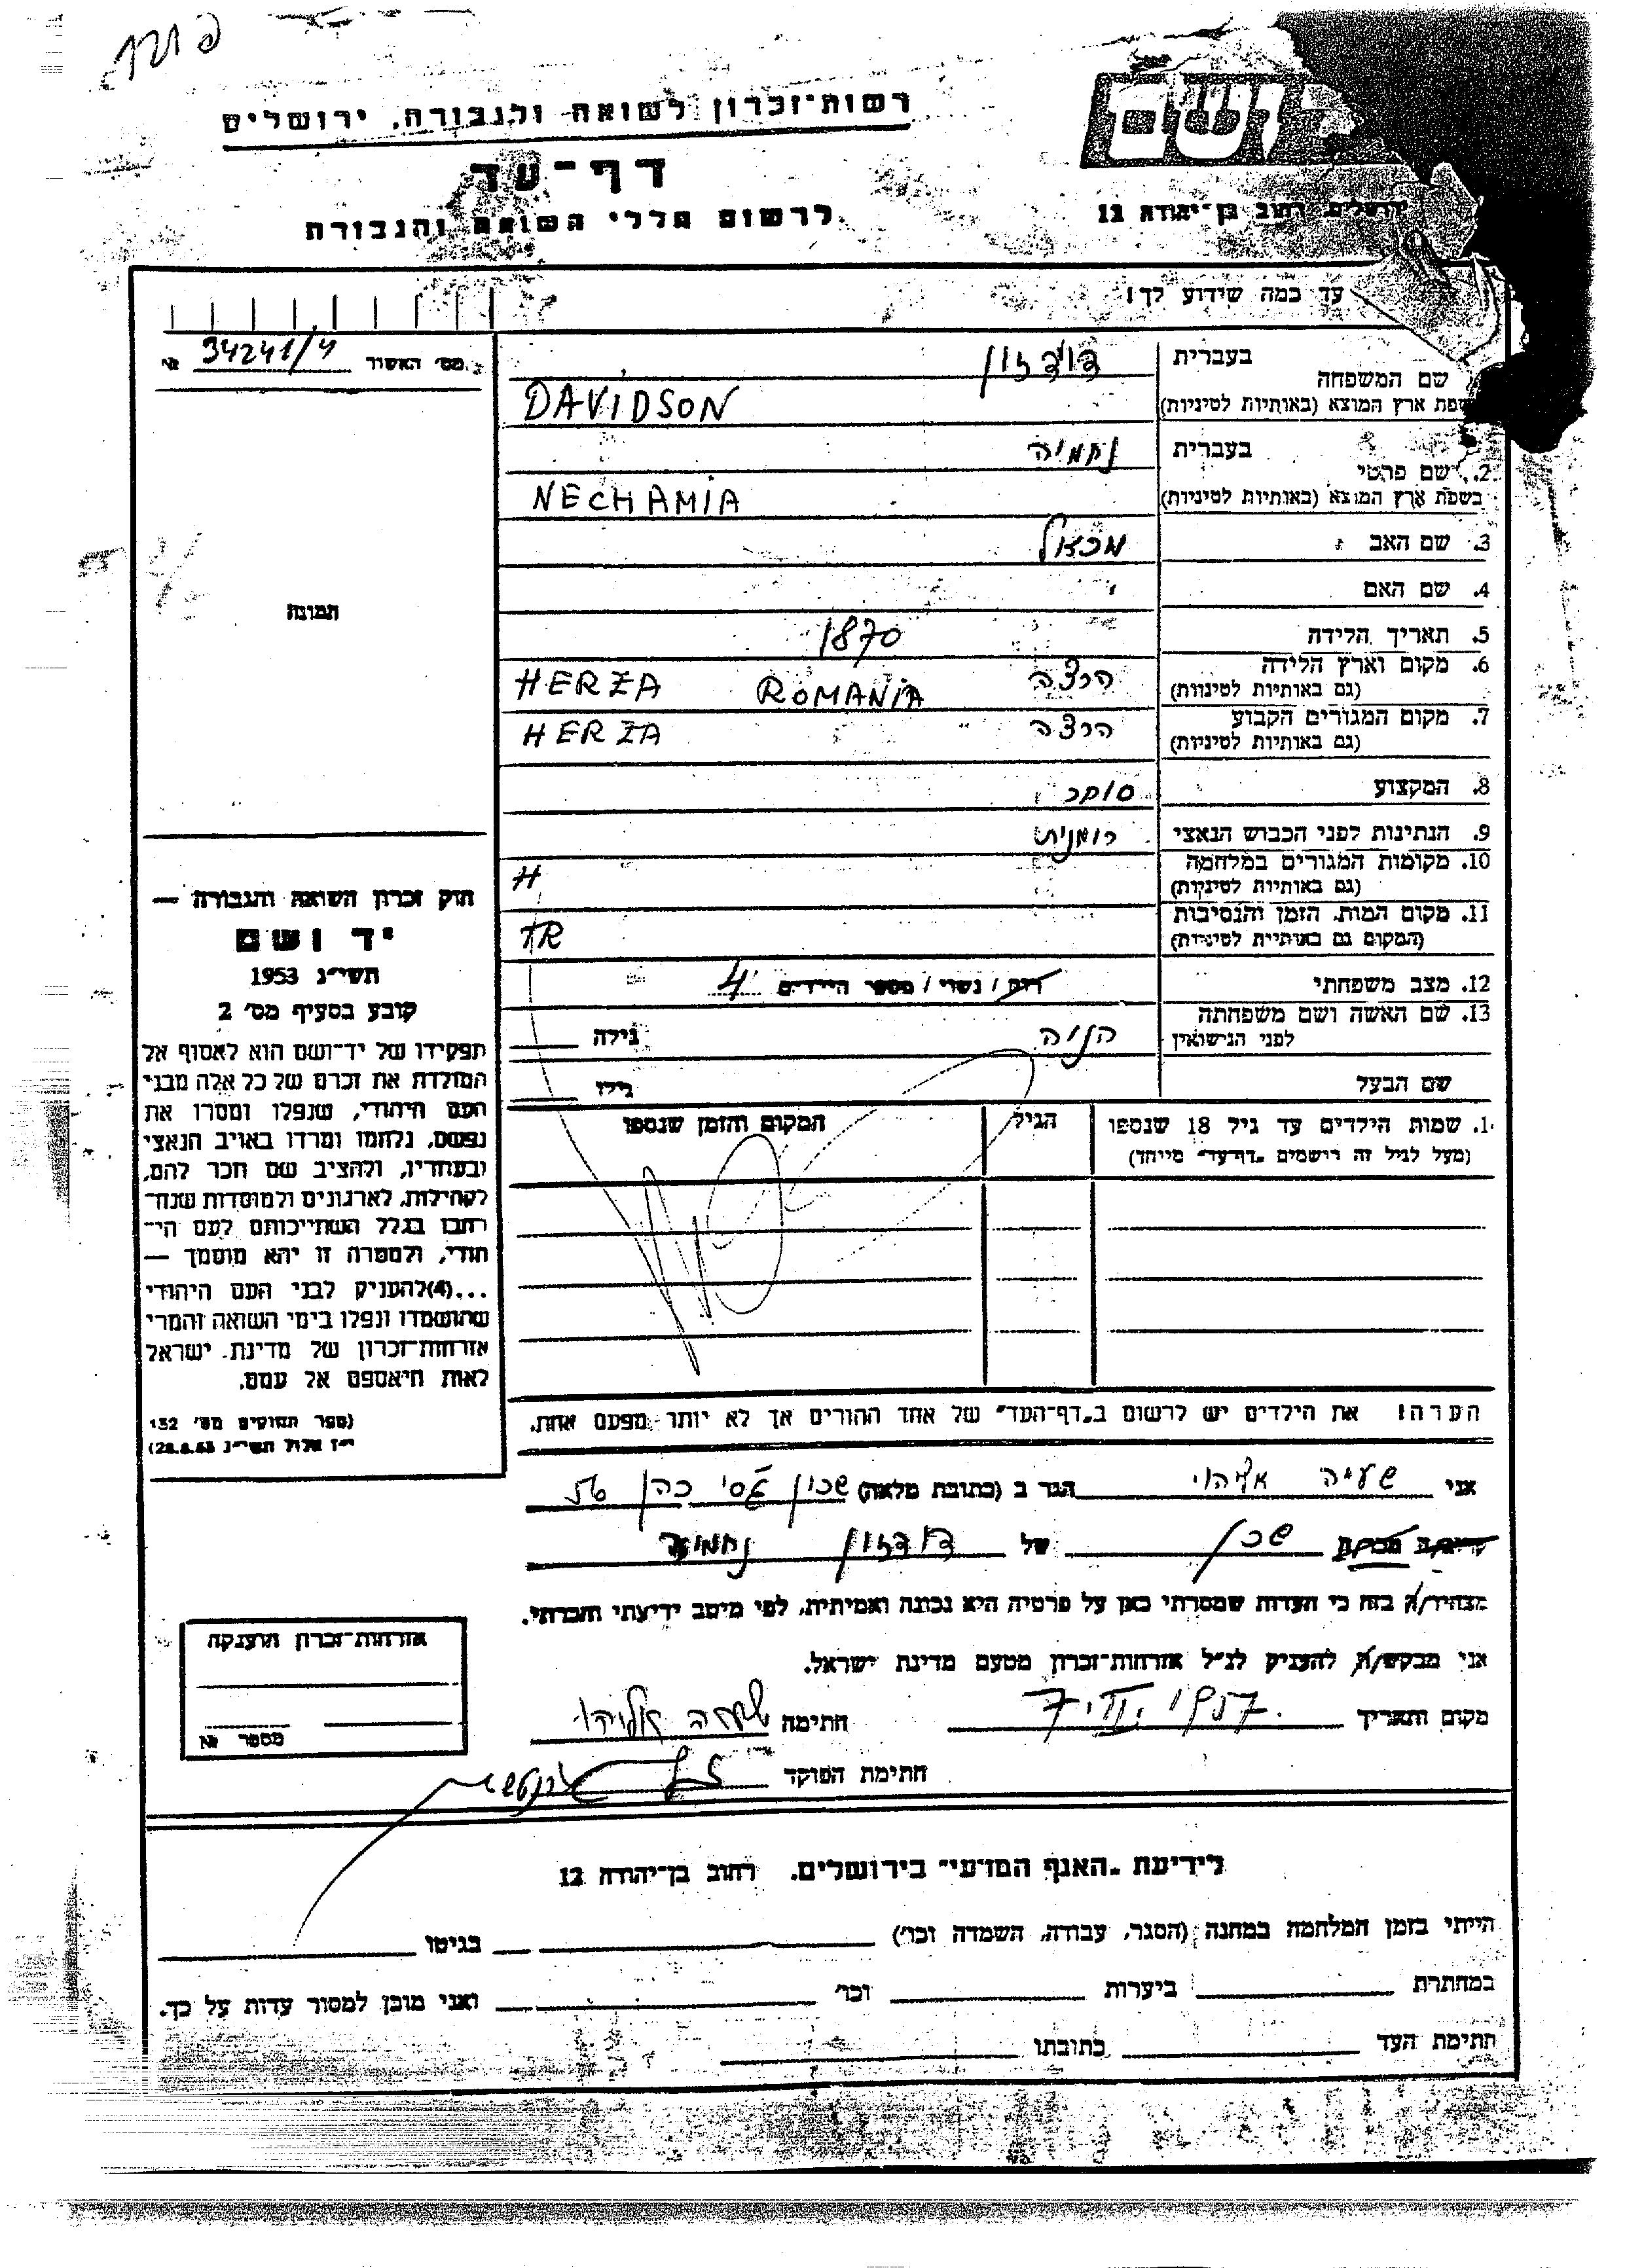 רשות־זכרון לשואה ולגבורה, ירושלים
ושם
דף־עד
לרשום חללי השואה והגבורה
ירושלים, רחוב בן־יהודה 12
עד כמה שידוע לך!
מס׳ האשור 34241/4 №
שם המשפחה
בעברית דוידזון
בשפת ארץ המוצא (באותיות לטיניות) DAVIDSON
2. שם פרטי
בעברית נחמיה
בשפת ארץ המוצא (באותיות לטיניות) NECHAMIA
3. שם האב מכאל
4. שם האם
5. תאריך הלידה 1870
6. מקום וארץ הלידה הרצה ROMANIA HERZA
(גם באותיות לטיניות)
7. מקום המגורים הקבוע הרצה HERZA
(גם באותיות לטיניות)
8. המקצוע סוחר
9. הנתינות לפני הכבוש הנאצי רומנית
10. מקומות המגורים במלחמה H
(גם באותיות לטיניות)
11. מקום המות, הזמן והנסיבות TR
(המקום גם באותיות לטיניות)
12. מצב משפחתי רוק / נשוי / מספר הילדים 4
13. שם האשה ושם משפחתה
לפני הנישואין חניה גילה
שם הבעל גילו
שמות הילדים עד גיל 18 שנספו
(מעל לגיל זה רישמים „דף־עד״ מיוחד)
הגיל
המקום והזמן שנספו
הערה! את הילדים יש לרשום ב„דף־העד״ של אחד ההורים אך לא יותר מפעם אחת.
תמונה
חוק זכרון השואה והגבורה —
יד ושם
תשי״ג 1953
קובע בסעיף מס׳ 2
תפקידו של יד־ושם הוא לאסוף אל
המולדת את זכרם של כל אלה מבני
העם היהודי, שנפלו ומסרו את
נפשם, נלחמו ומרדו באויב הנאצי
ובעוזריו, ולהציב שם וזכר להם,
לקהילות, לארגונים ולמוסדות שנח־
רבו בגלל השתייכותם לעם הי־
הודי, ולמטרה זו יהא מוסמך —
...(4)להעניק לבני העם היהודי
שהושמדו ונפלו בימי השואה והמרי
אזרחות־זכרון של מדינת ישראל
לאות היאספם אל עמם.
(ספר החוקים מס׳ 132
י״ז אלול תשי״ג 28.8.53)
אני שעיה אליהו הגר ב (כתובת מלאה) שכון גסי כהן 56
קרוב/ה מכיר/ה שכן של דודזון נחמיה
מצהיר/ה בזה כי העדות שמסרתי כאן על פרטיה היא נכונה ואמיתית, לפי מיטב ידיעתי והכרתי.
אני מבקש/ת להעניק לנ״ל אזרחות־זכרון מטעם מדינת ישראל.
מקום ותאריך 7.III.1957 חתימה שעיה אליהו
חתימת הפוקד
אזרחות־זכרון הוענקה
מספר №
לידיעת „האגף המדעי״ בירושלים, רחוב בן־יהודה 12
הייתי בזמן המלחמה במחנה (הסגר, עבודה, השמדה וכו׳) בגיטו
במחתרת ביערות וכו׳ ואני מוכן למסור עדות על כך.
חתימת העד כתובתו